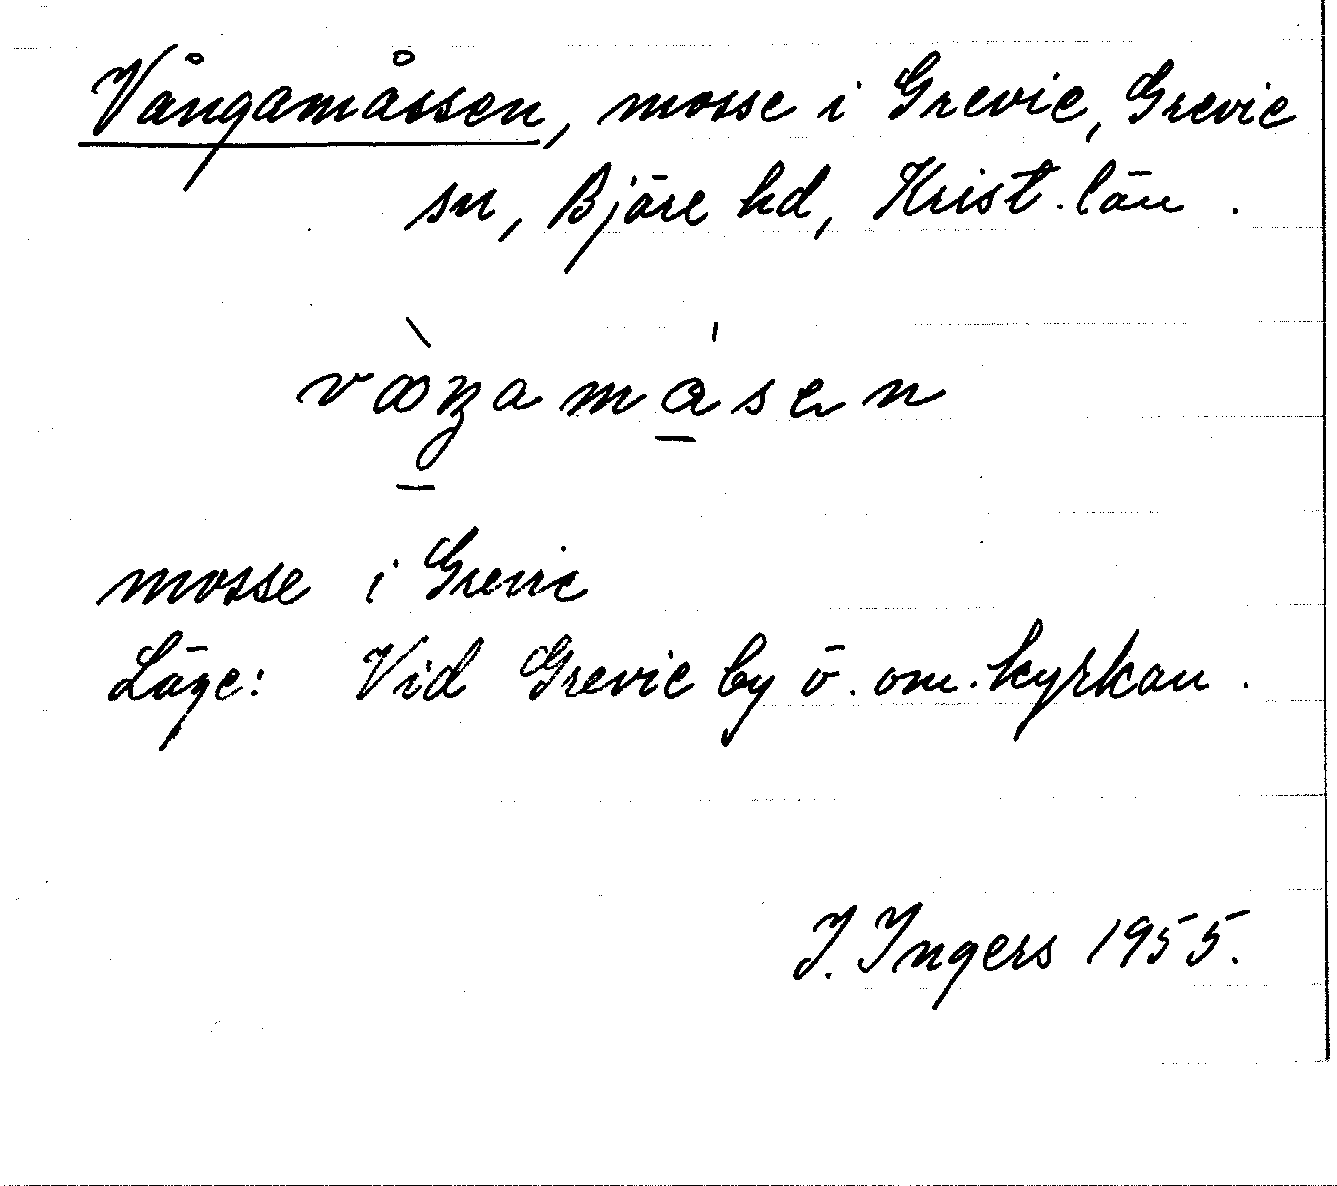 Vångamåssen, mosse i Grevie, Grevie
sn, Bjäre hd, Krist. län.
mosse i Grevie
Läge: Vid Grevie by ö. om kyrkan.
I. Ingers 1955.